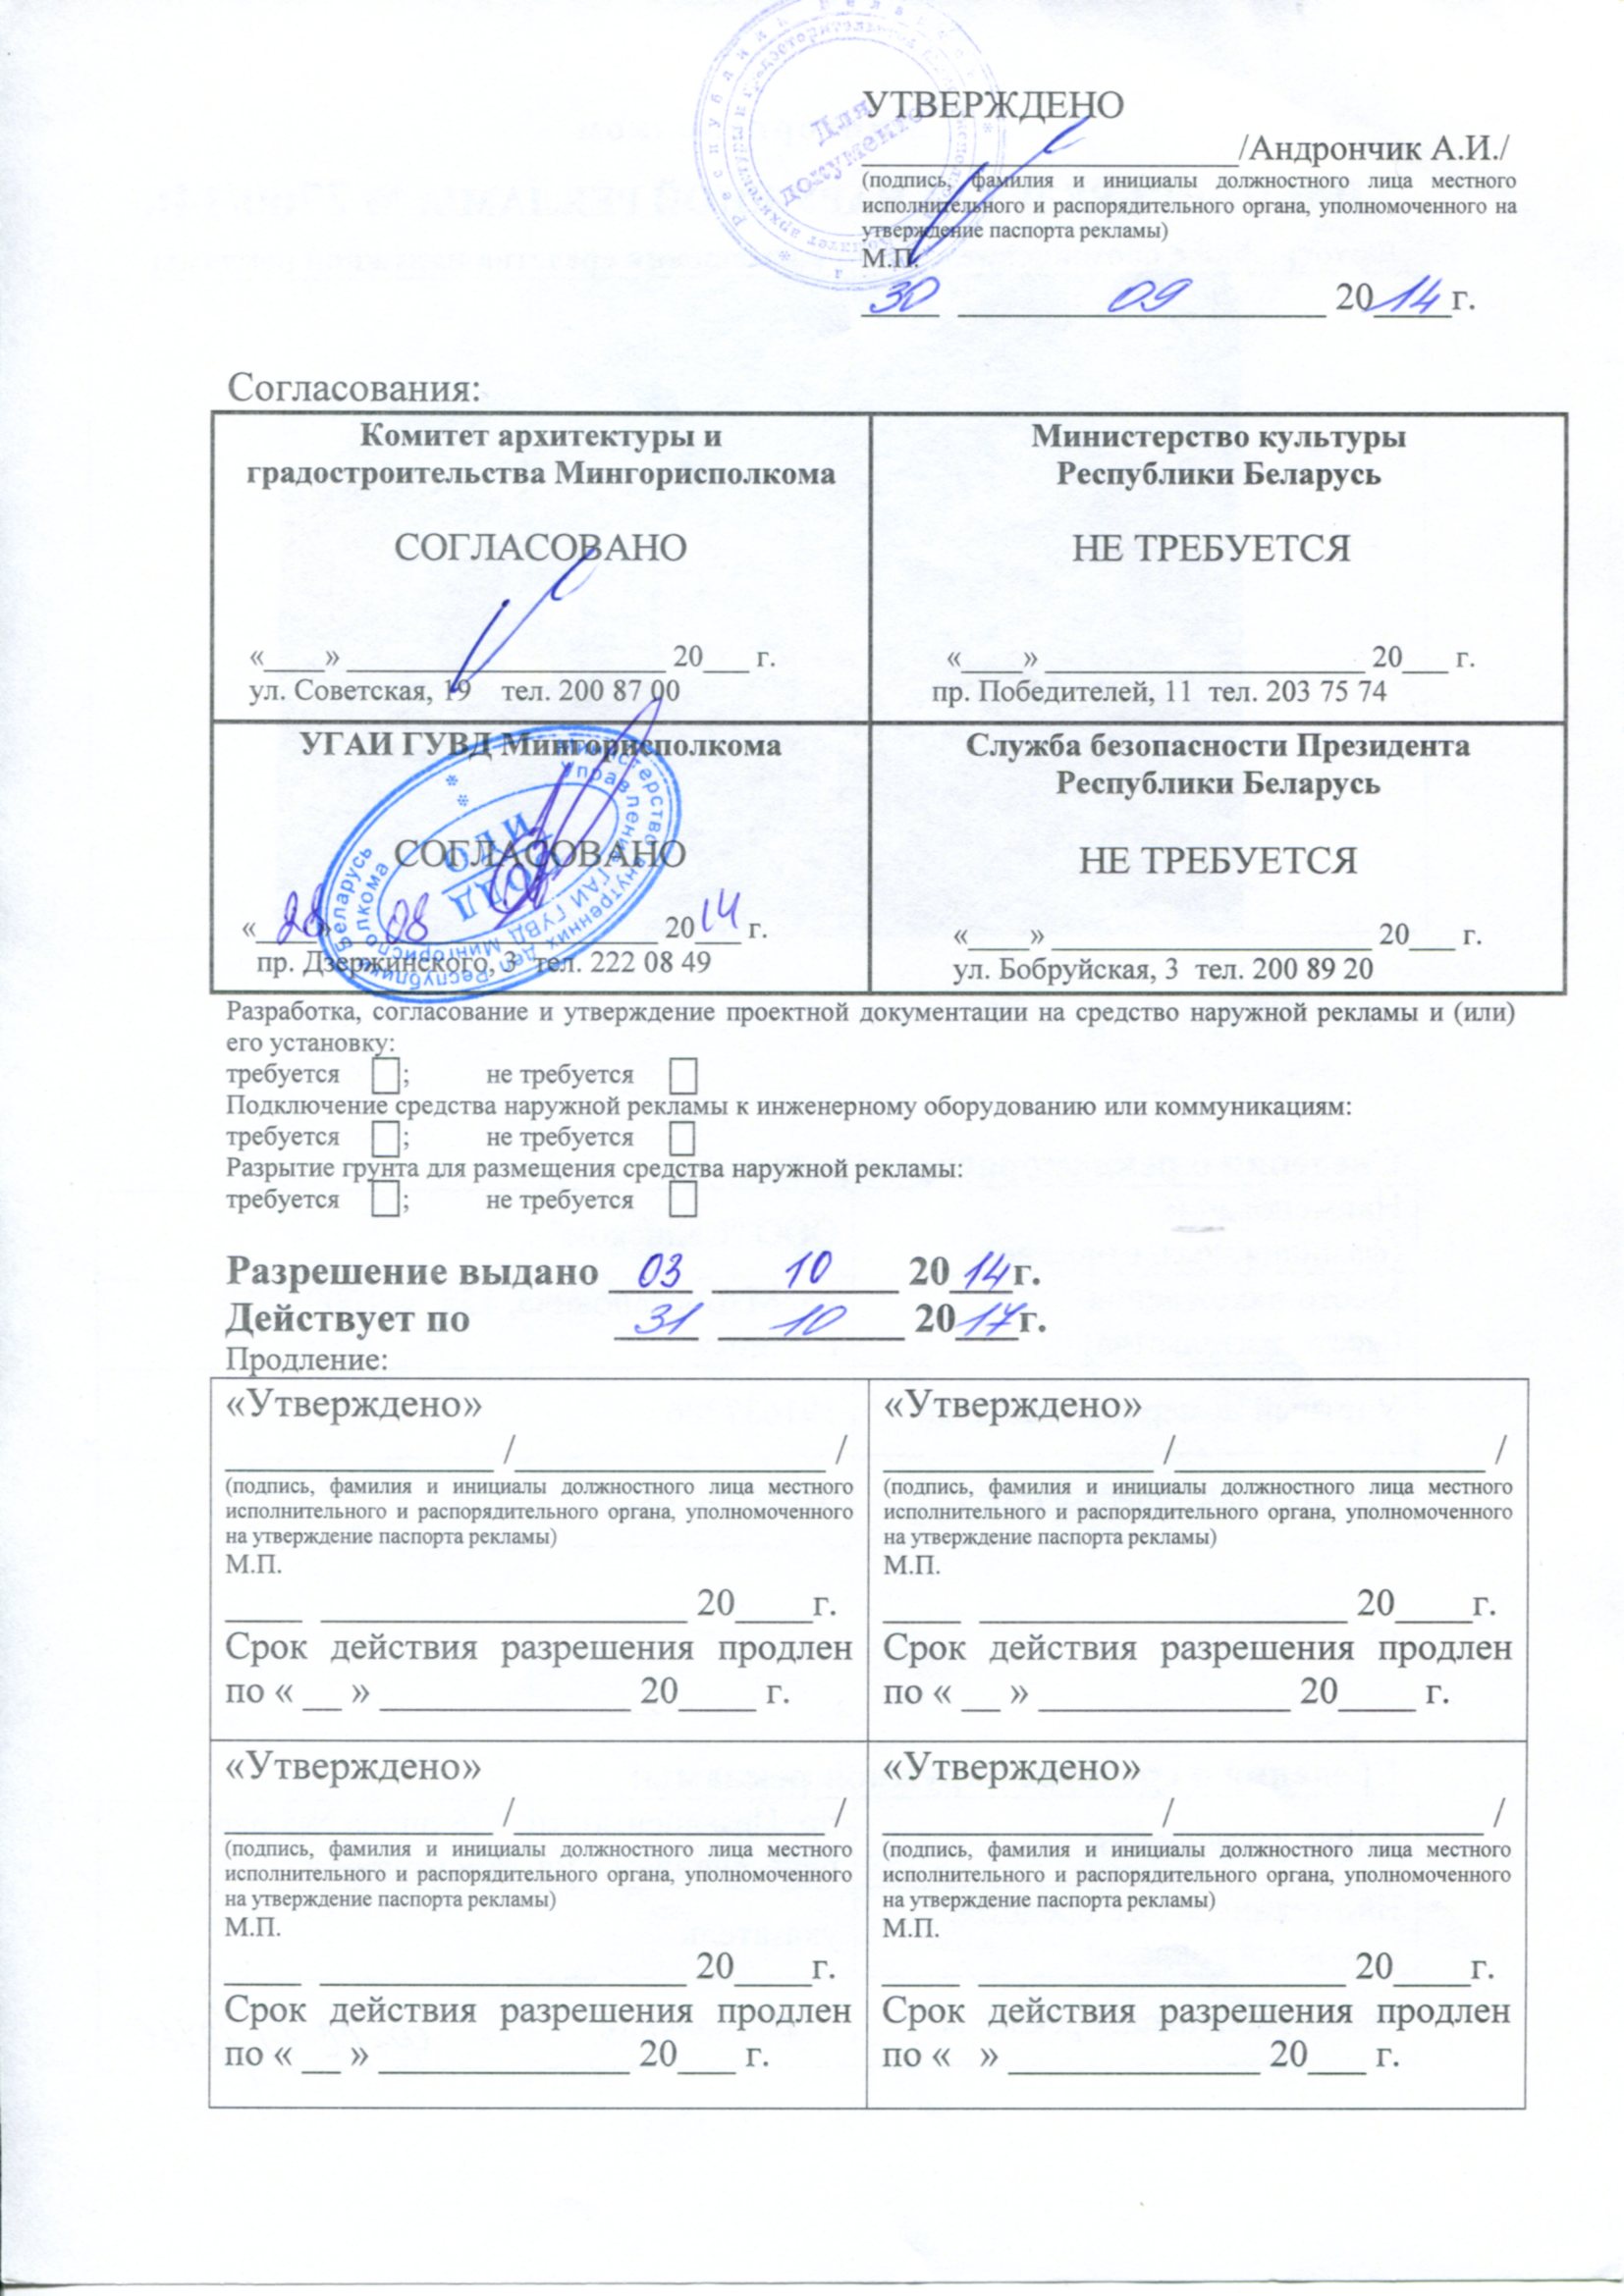 УТВЕРЖДЕНО
/Андрончик А.И./
(подпись, фамилия и инициалы должностного лица местного
исполнительного и распорядительного органа, уполномоченного на
утверждение паспорта рекламы)
М.П.
30 09 2014г.
Для
документов
Согласования:
Комитет архитектуры и
градостроительства Мингорисполкома
СОГЛАСОВАНО
«____» ____________________ 20___ г.
ул. Советская, 19 тел. 200 87 00
Министерство культуры
Республики Беларусь
НЕ ТРЕБУЕТСЯ
«____» ____________________ 20___ г.
пр. Победителей, 11 тел. 203 75 74
УГАИ ГУВД Мингорисполкома
СОГЛАСОВАНО
«28» 08 2014 г.
пр. Дзержинского, 3 тел. 222 08 49
Министерство внутренних дел Республики Беларусь
Управление ГАИ ГУВД Мингорисполкома
Служба безопасности Президента
Республики Беларусь
НЕ ТРЕБУЕТСЯ
«____» ____________________ 20___ г.
ул. Бобруйская, 3 тел. 200 89 20
Разработка, согласование и утверждение проектной документации на средство наружной рекламы и (или)
его установку:
требуется ; не требуется
Подключение средства наружной рекламы к инженерному оборудованию или коммуникациям:
требуется ; не требуется
Разрытие грунта для размещения средства наружной рекламы:
требуется ; не требуется
Разрешение выдано 03 10 2014г.
Действует по 31 10 2017г.
Продление:
«Утверждено»
______________ /________________ /
(подпись, фамилия и инициалы должностного лица местного
исполнительного и распорядительного органа, уполномоченного
на утверждение паспорта рекламы)
М.П.
____ ___________________ 20____г.
Срок действия разрешения продлен
по « __ » _____________ 20____ г.
«Утверждено»
______________ /________________ /
(подпись, фамилия и инициалы должностного лица местного
исполнительного и распорядительного органа, уполномоченного
на утверждение паспорта рекламы)
М.П.
____ ___________________ 20____г.
Срок действия разрешения продлен
по « __ » _____________ 20____ г.
«Утверждено»
______________ /________________ /
(подпись, фамилия и инициалы должностного лица местного
исполнительного и распорядительного органа, уполномоченного
на утверждение паспорта рекламы)
М.П.
____ ___________________ 20____г.
Срок действия разрешения продлен
по « __ » _____________ 20___ г.
«Утверждено»
______________ /________________ /
(подпись, фамилия и инициалы должностного лица местного
исполнительного и распорядительного органа, уполномоченного
на утверждение паспорта рекламы)
М.П.
____ ___________________ 20____г.
Срок действия разрешения продлен
по « » _____________ 20___ г.